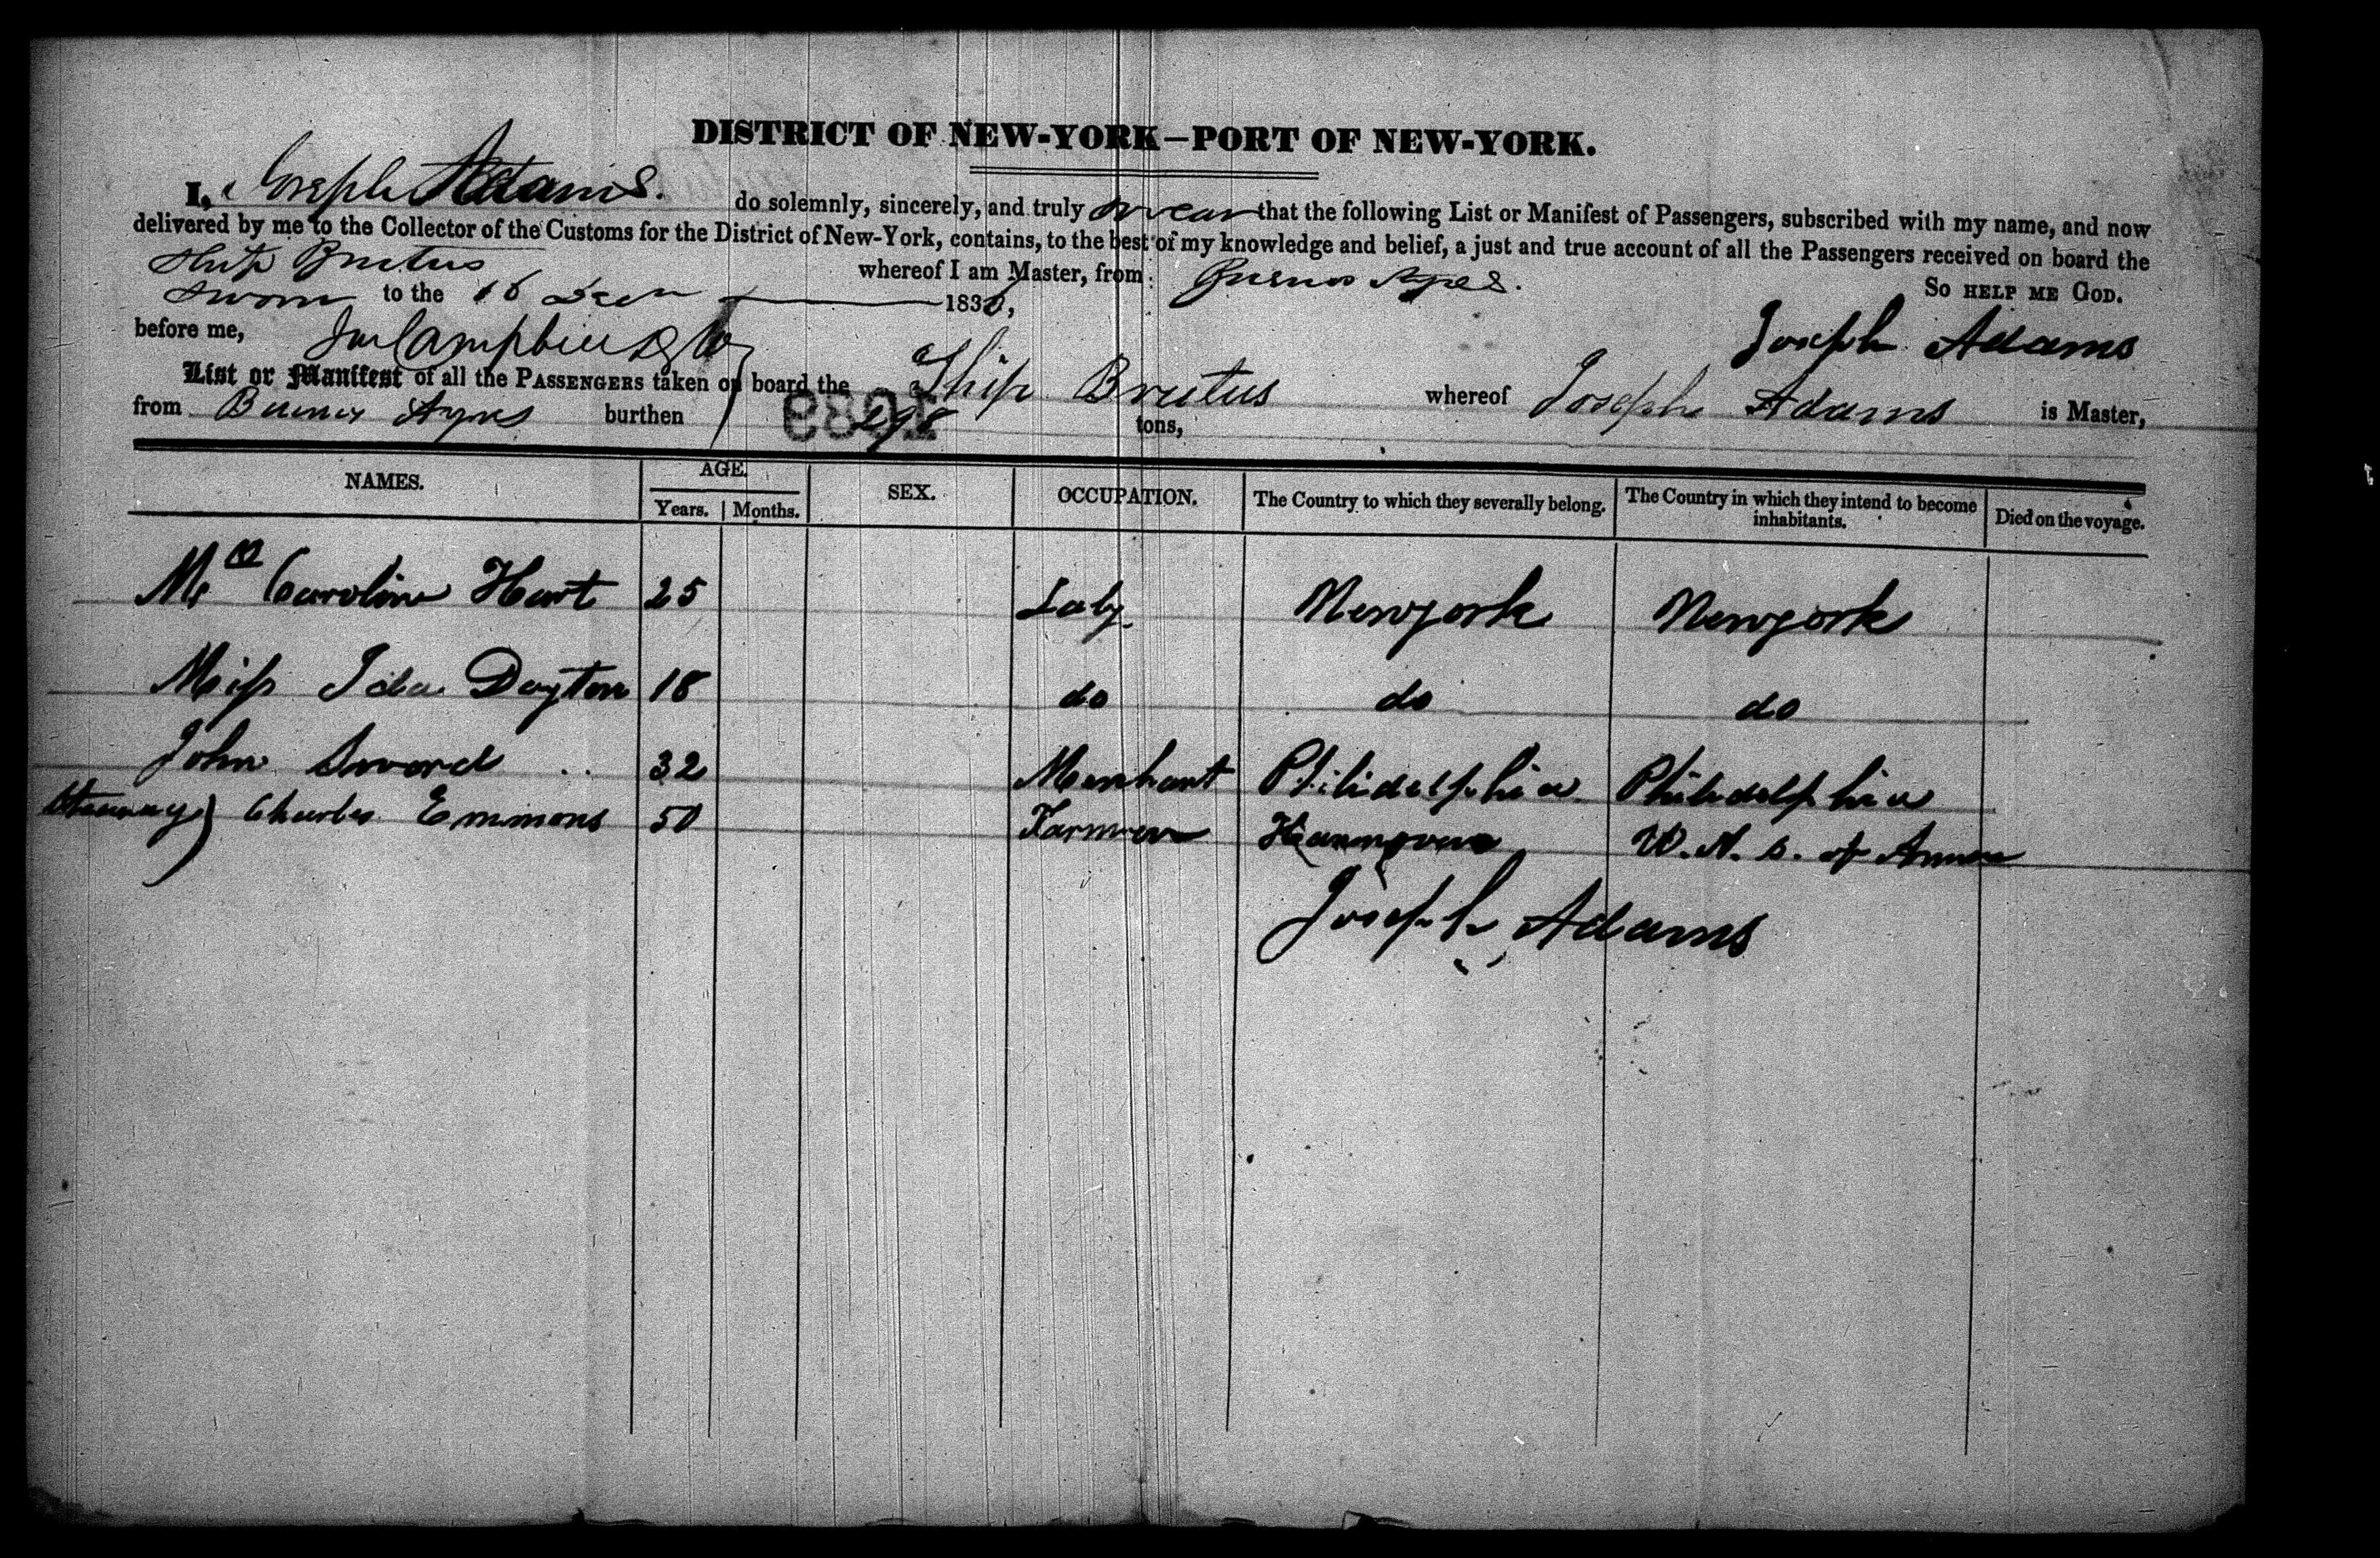 DISTRICT OF NEW-YORK—PORT OF NEW-YORK.
I, Joseph Adams. do solemnly, sincerely, and truly swear that the following List or Manifest of Passengers, subscribed with my name, and now
delivered by me to the Collector of the Customs for the District of New-York, contains, to the best of my knowledge and belief, a just and true account of all the Passengers received on board the
Ship Brutus whereof I am Master, from Buenos Ayres. So HELP ME GOD.
Sworn to the 16 183
before me, Campbell Joseph Adams
List or Manifest of all the PASSENGERS taken on board the Ship Brutus whereof Joseph Adams is Master,
from Buenos Ayres burthen 298 tons,
NAMES. AGE. SEX. OCCUPATION. The Country to which they severally belong. The Country in which they intend to become inhabitants. Died on the voyage.
Years. Months.
Mrs Caroline Hart 25 Lady Newyork Newyork
Miss Ida Dayton 18 do do do
John Sword 32 Merchant Philidelphia Philidelphia
Charles Emmons 50 Farmer Hannover of
Joseph Adams